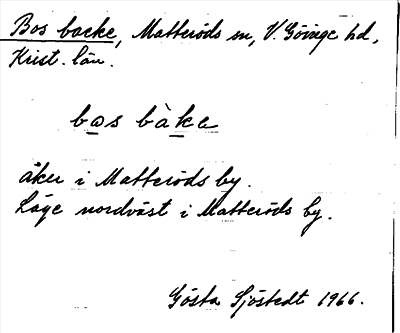 Bos backe, Matteröds sn, V. Göinge hd,
Krist. län.
bos bàke
åker i Matteröds by.
Läge nordväst i Matteröds by.
Gösta Sjöstedt 1966.